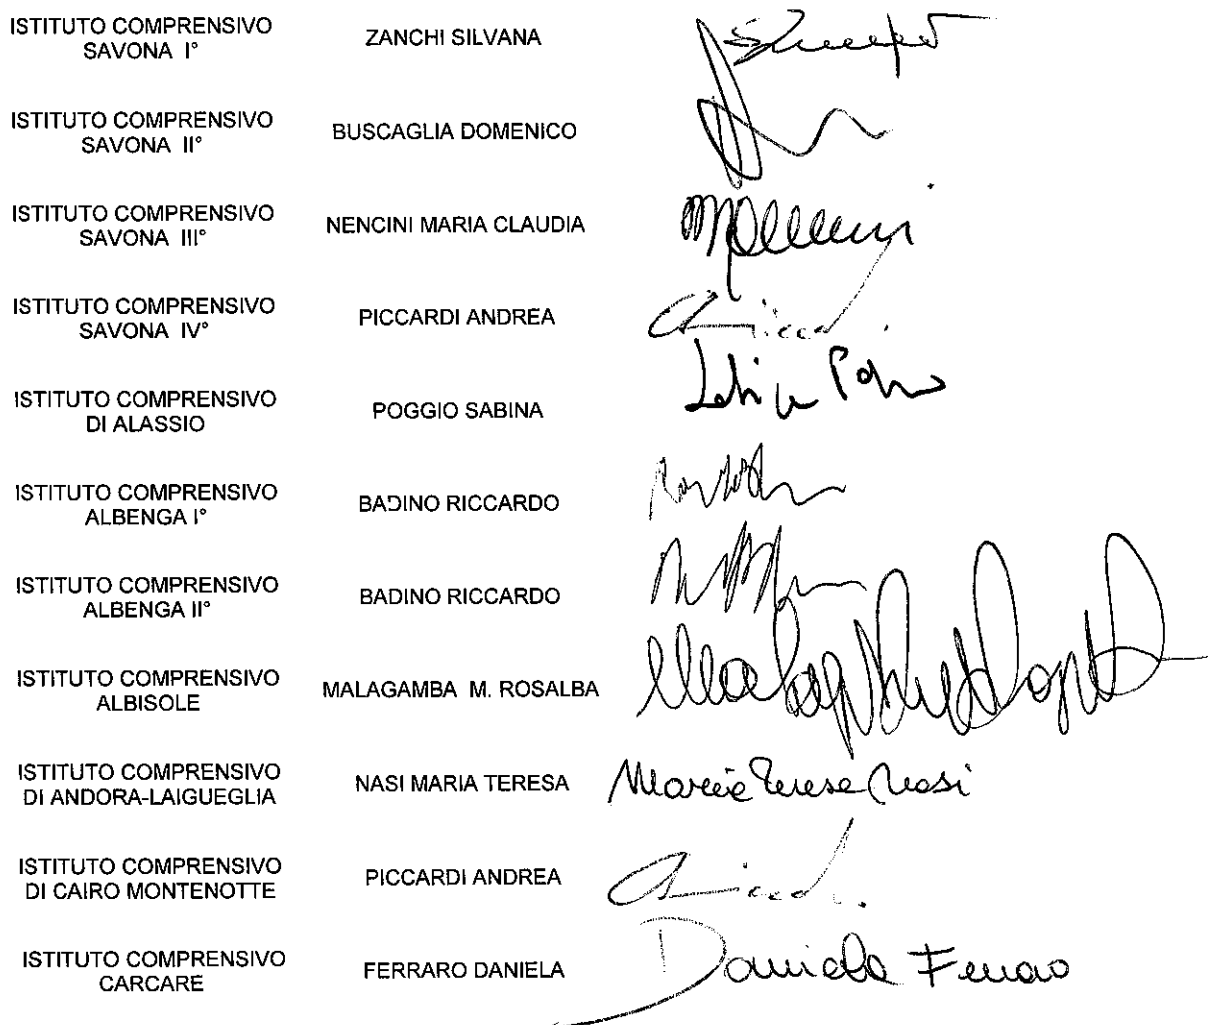 ISTITUTO COMPRENSIVO
SAVONA I°
ZANCHI SILVANA
ISTITUTO COMPRENSIVO
SAVONA II°
BUSCAGLIA DOMENICO
ISTITUTO COMPRENSIVO
SAVONA III°
NENCINI MARIA CLAUDIA
ISTITUTO COMPRENSIVO
SAVONA IV°
PICCARDI ANDREA
ISTITUTO COMPRENSIVO
DI ALASSIO
POGGIO SABINA
ISTITUTO COMPRENSIVO
ALBENGA I°
BADINO RICCARDO
ISTITUTO COMPRENSIVO
ALBENGA II°
BADINO RICCARDO
ISTITUTO COMPRENSIVO
ALBISOLE
MALAGAMBA M. ROSALBA
ISTITUTO COMPRENSIVO
DI ANDORA-LAIGUEGLIA
NASI MARIA TERESA
Maria Teresa Nasi
ISTITUTO COMPRENSIVO
DI CAIRO MONTENOTTE
PICCARDI ANDREA
ISTITUTO COMPRENSIVO
CARCARE
FERRARO DANIELA
Daniela Ferraro